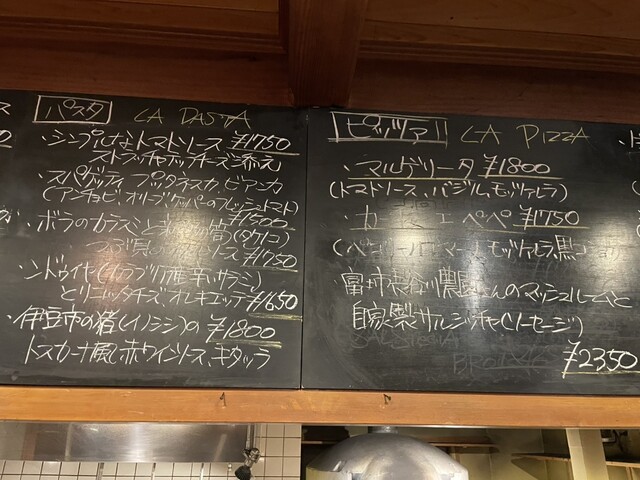 パスタ LA PASTA
・シンプルなトマトソース ¥1750
ストラッチャテッラチーズ添え
・スパゲッティ プッタネスカ ビアンカ
(アンチョビ、オリーブ、ケッパーのフレッシュトマト)
¥1500
・ボラのカラスミと の筍(タケノコ)
ソース ¥1750
・ンドゥイヤ(カラブリア産 辛いサラミ)
とリコッタチーズ、オレキエッテ ¥1650
・伊豆市の猪(イノシシ)の ¥1800
トスカーナ風 赤ワインソース、キタッラ
ピッツァ!! LA PIZZA
・マルゲリータ ¥1800
(トマトソース、バジル、モッツァレラ)
・カーチョ エ ペペ ¥1750
(ペコリーノロマーノ、モッツァレラ、黒コショウ)
・富士市長谷川農園さんのマッシュルームと
自家製サルシッチャ(ソーセージ)
¥2350